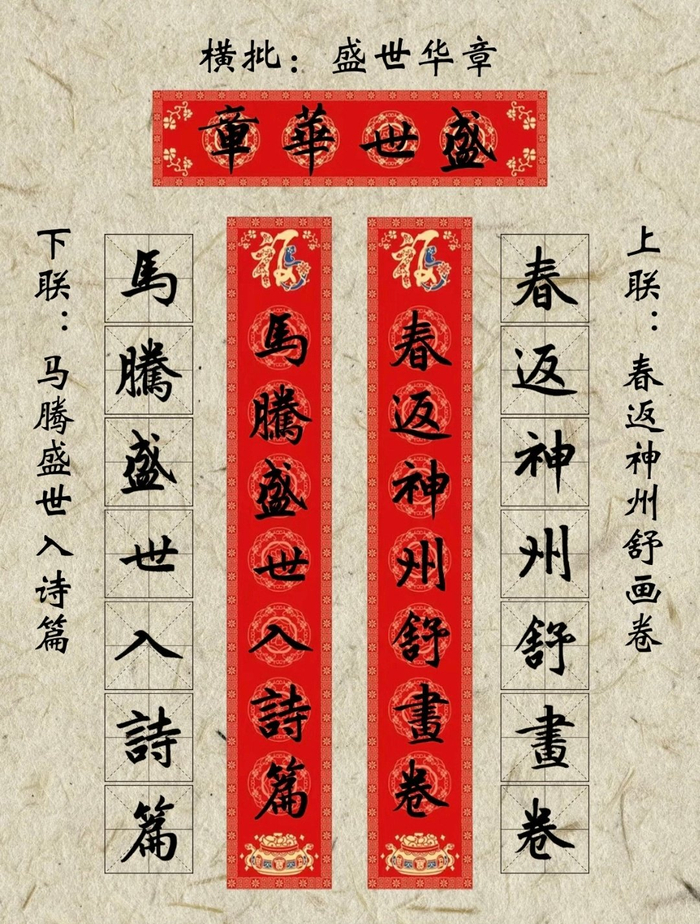 横批：盛世华章
盛世華章
上联：春返神州舒画卷
春返神州舒畫卷
春返神州舒畫卷
馬騰盛世入詩篇
馬騰盛世入詩篇
下联：马腾盛世入诗篇